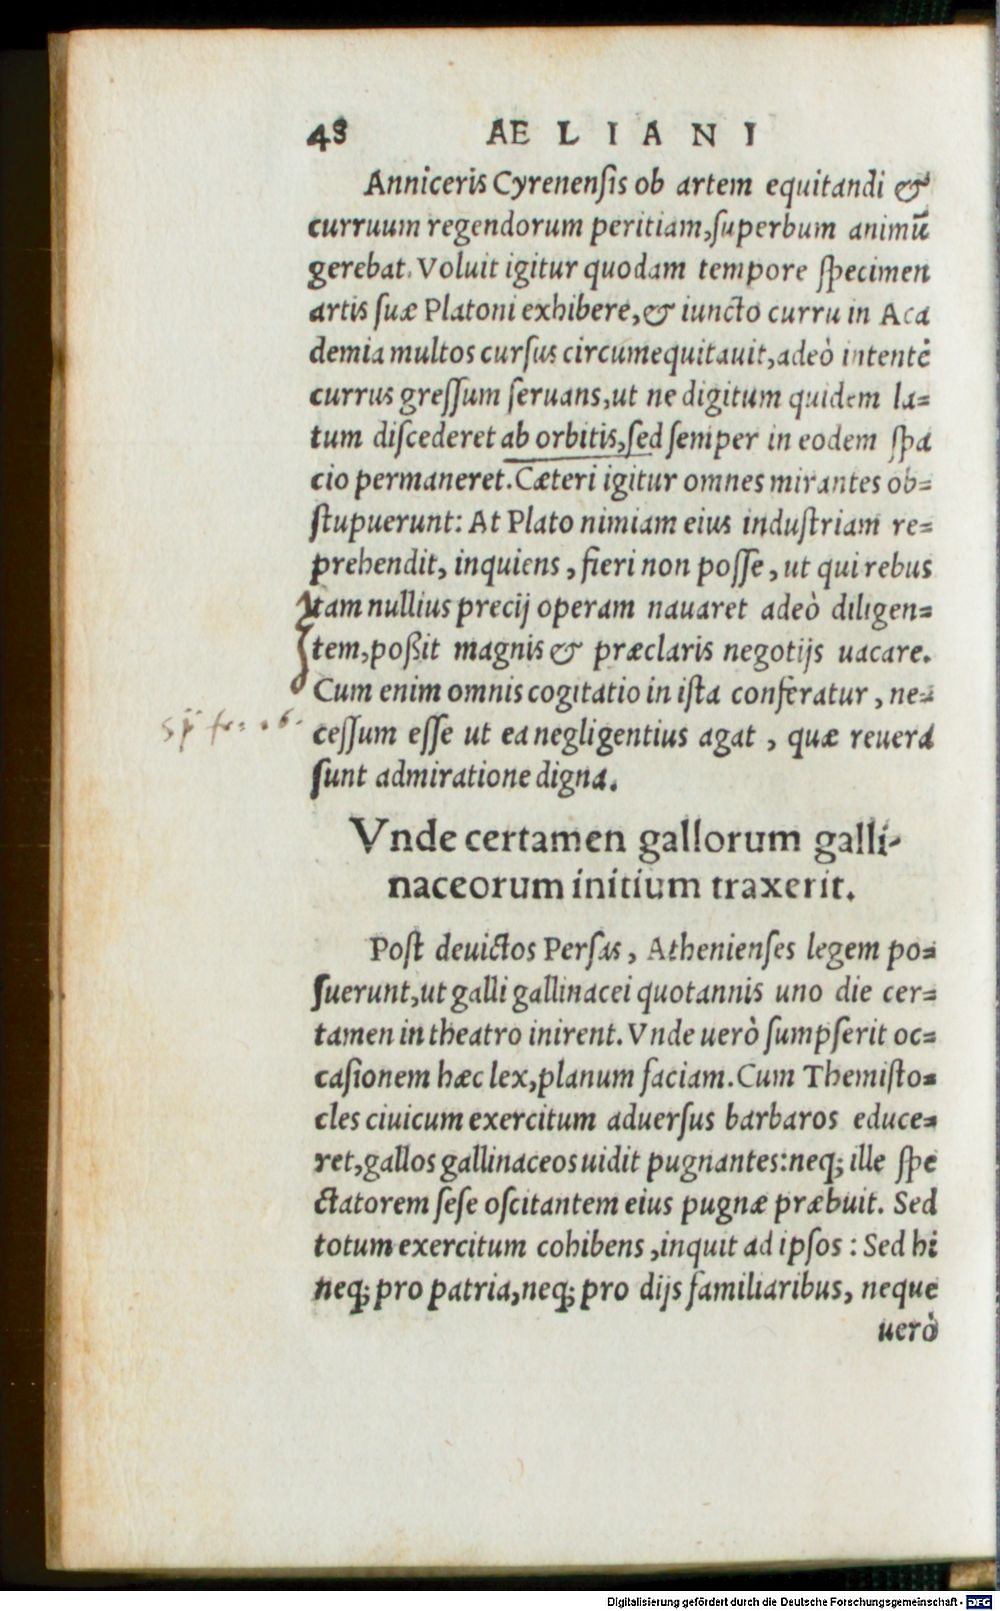 48 AELIANI
Anniceris Cyrenenſis ob artem equitandi &
curruum regendorum peritiam,ſuperbum animũ
gerebat. Voluit igitur quodam tempore ſpecimen
artis ſuæ Platoni exhibere,& iuncto curru in Aca
demia multos curſus circumequitauit,adeò intentè
currus greſſum ſeruans,ut ne digitum quidem la=
tum diſcederet ab orbitis,ſed ſemper in eodem ſpa
cio permaneret. Cæteri igitur omnes mirantes ob=
ſtupuerunt: At Plato nimiam eius induſtriam re=
prehendit, inquiens, fieri non poſſe, ut qui rebus
tam nullius precij operam nauaret adeò diligen=
tem,poßit magnis & præclaris negotijs uacare.
Cum enim omnis cogitatio in iſta conferatur, ne=
ceſſum eſſe ut ea negligentius agat, quæ reuera
ſunt admiratione digna.
Vnde certamen gallorum galli-
naceorum initium traxerit.
Poſt deuictos Perſas, Athenienſes legem po=
ſuerunt,ut galli gallinacei quotannis uno die cer=
tamen in theatro inirent. Vnde uerò ſumpſerit oc=
caſionem hæc lex,planum faciam. Cum Themiſto=
cles ciuicum exercitum aduerſus barbaros educe=
ret,gallos gallinaceos uidit pugnantes:neq; ille ſpe
ctatorem ſeſe oſcitantem eius pugnæ præbuit. Sed
totum exercitum cohibens,inquit ad ipſos: Sed hi
neq; pro patria,neq; pro dijs familiaribus, neque
uerò
Digitalisierung gefördert durch die Deutsche Forschungsgemeinschaft - DFG